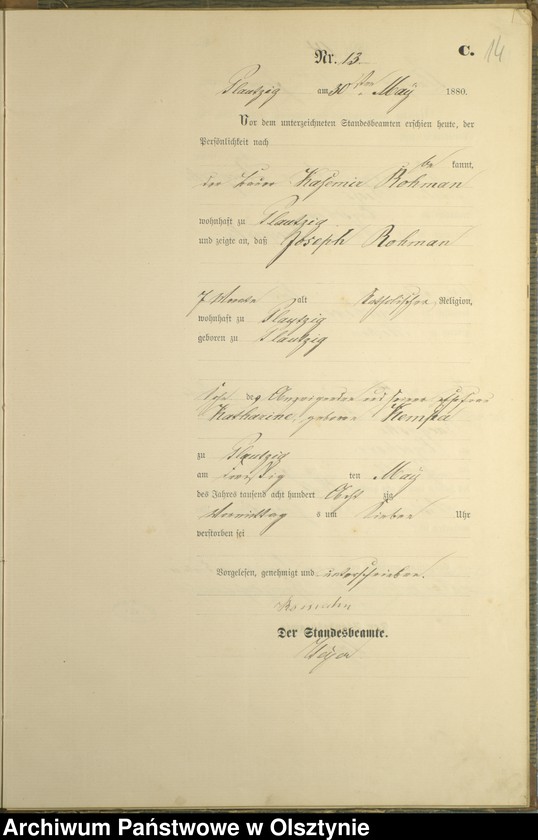 C.
14
Nr. 13
Plautzig am 30ten May 1880.
Vor dem unterzeichneten Standesbeamten erschien heute, der
Persönlichkeit nach
be kannt,
der Kasimir Rohman
wohnhaft zu Plautzig
und zeigte an, daß Joseph Rohman
7 Monate alt katholischer Religion,
wohnhaft zu Plautzig
geboren zu Plautzig
Sohn des Anzeigenden und seiner Ehefrau
Katharine, geborene Kempa
zu Plautzig
am dreißig ten May
des Jahres tausend acht hundert Acht zig
Vormittag s um Sieben Uhr
verstorben sei
Vorgelesen, genehmigt und unterschrieben.
Der Standesbeamte.
Archiwum Państwowe w Olsztynie